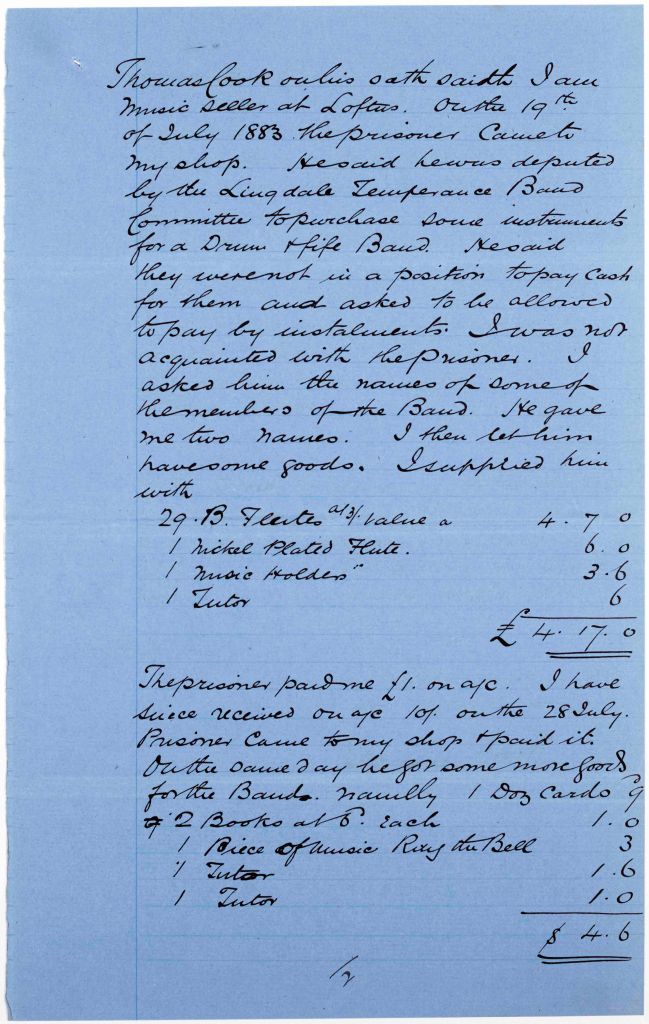 Thomas Cook on his oath saith I am
Music seller at Loftus. On the 19th
of July 1883 the prisoner Came to
my shop. He said he was deputed
by the Lingdale Temperance Band
Committee to purchase some instruments
for a Drum & fife Band. He said
they were not in a position to pay Cash
for them and asked to be allowed
to pay by instalments. I was not
acquainted with the prisoner. I
asked him the names of some of
the members of the Band. He gave
me two names. I then let him
have some goods. I supplied him
with
29 . B. Flutes at 3/. value a 4. 7 0
1 Nickel Plated Flute. 6. 0
1 Music Holders " 3. 6
1 Tutor 6
£ 4. 17. 0
The prisoner paid me £1. on a/c. I have
siece received on a/c 10/. on the 28 July.
Prisoner Came to my shop & paid it.
On the same day he got some more goods
for the Band. namilly 1 Doz Cards 9
2 Books at 6. Each 1. 0
1 Piece of Music Ring the Bell 3
1 Tutor 1. 6
1 Tutor 1. 0
4. 6
1/2